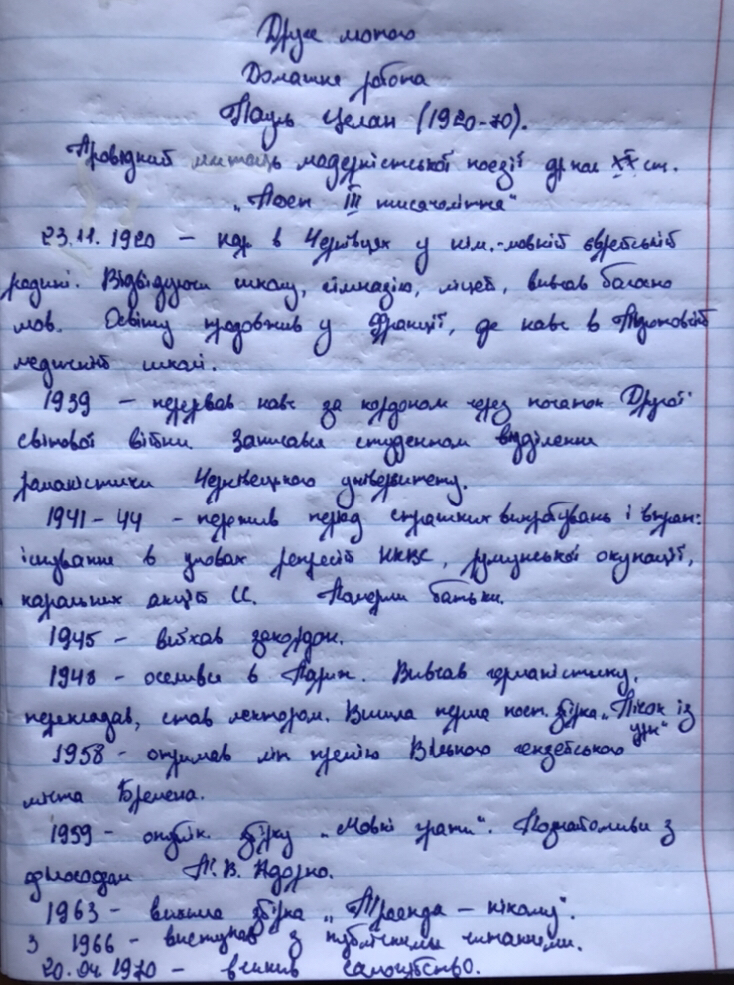 Друге лютого
Домашня робота
Пауль Целан (1920-70).
Провідний митець модерністської поезії др пол XX ст.
"Поет III тисячоліття"
23.11.1920 – нар в Чернівцях у нім.-мовній єврейській
родині. Відвідуючи школу, гімназію, ліцей, вивчав багато
мов. Освіту продовжив у Франції, де навч в Підготовчій
медичній школі.
1939 – перервав навч за кордоном через початок Другої
світової війни Записався студентом відділення
романістики Чернівецького університету.
1941-44 – пережив період страшних випробувань і втрат:
існування в умовах репресій НКВС, румунської окупації,
каральних акцій СС. Померли батьки.
1945 – виїхав закордон.
1948 – оселився в Париж. Вивчав германістику,
перекладав, став лектором. Вийшла перша поет. збірка "Пісок із
урн"
1958 – отримав літ премію Вільного ганзейського
міста Бремена.
1959 – опублік. збірку "Мовні грати". Познайомився з
філософом Т. В. Адорно.
1963 – вийшла збірка "Троянда – нікому".
З 1966 – виступав з публічними читаннями.
20.04.1970 – вчинив самогубство.